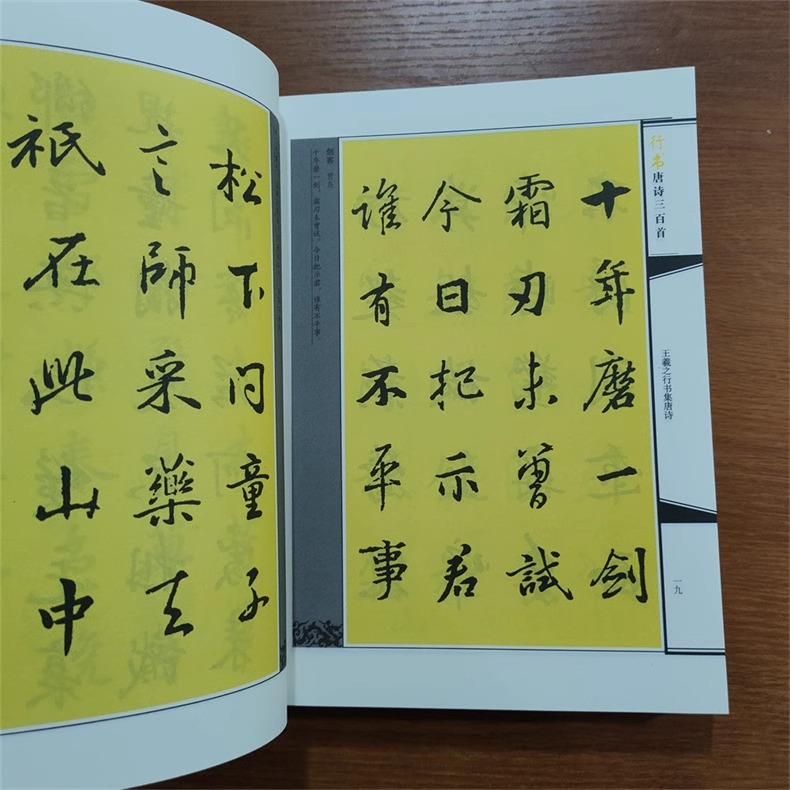 松下问童子
言師采藥去
祇在此山中
行书唐诗三百首
王羲之行书集唐诗
一九
十年磨一剑
霜刃未曾試
今日把示君
誰有不平事
剑客 贾岛
十年磨一剑，霜刃未曾试。今日把示君，谁有不平事。